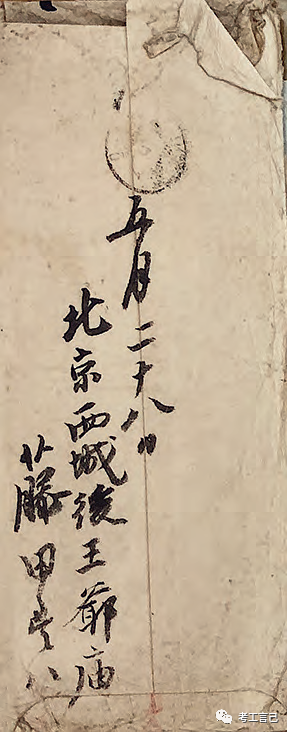 五月二十八日
北京西城後王爺庙
藤甲八
考工言己